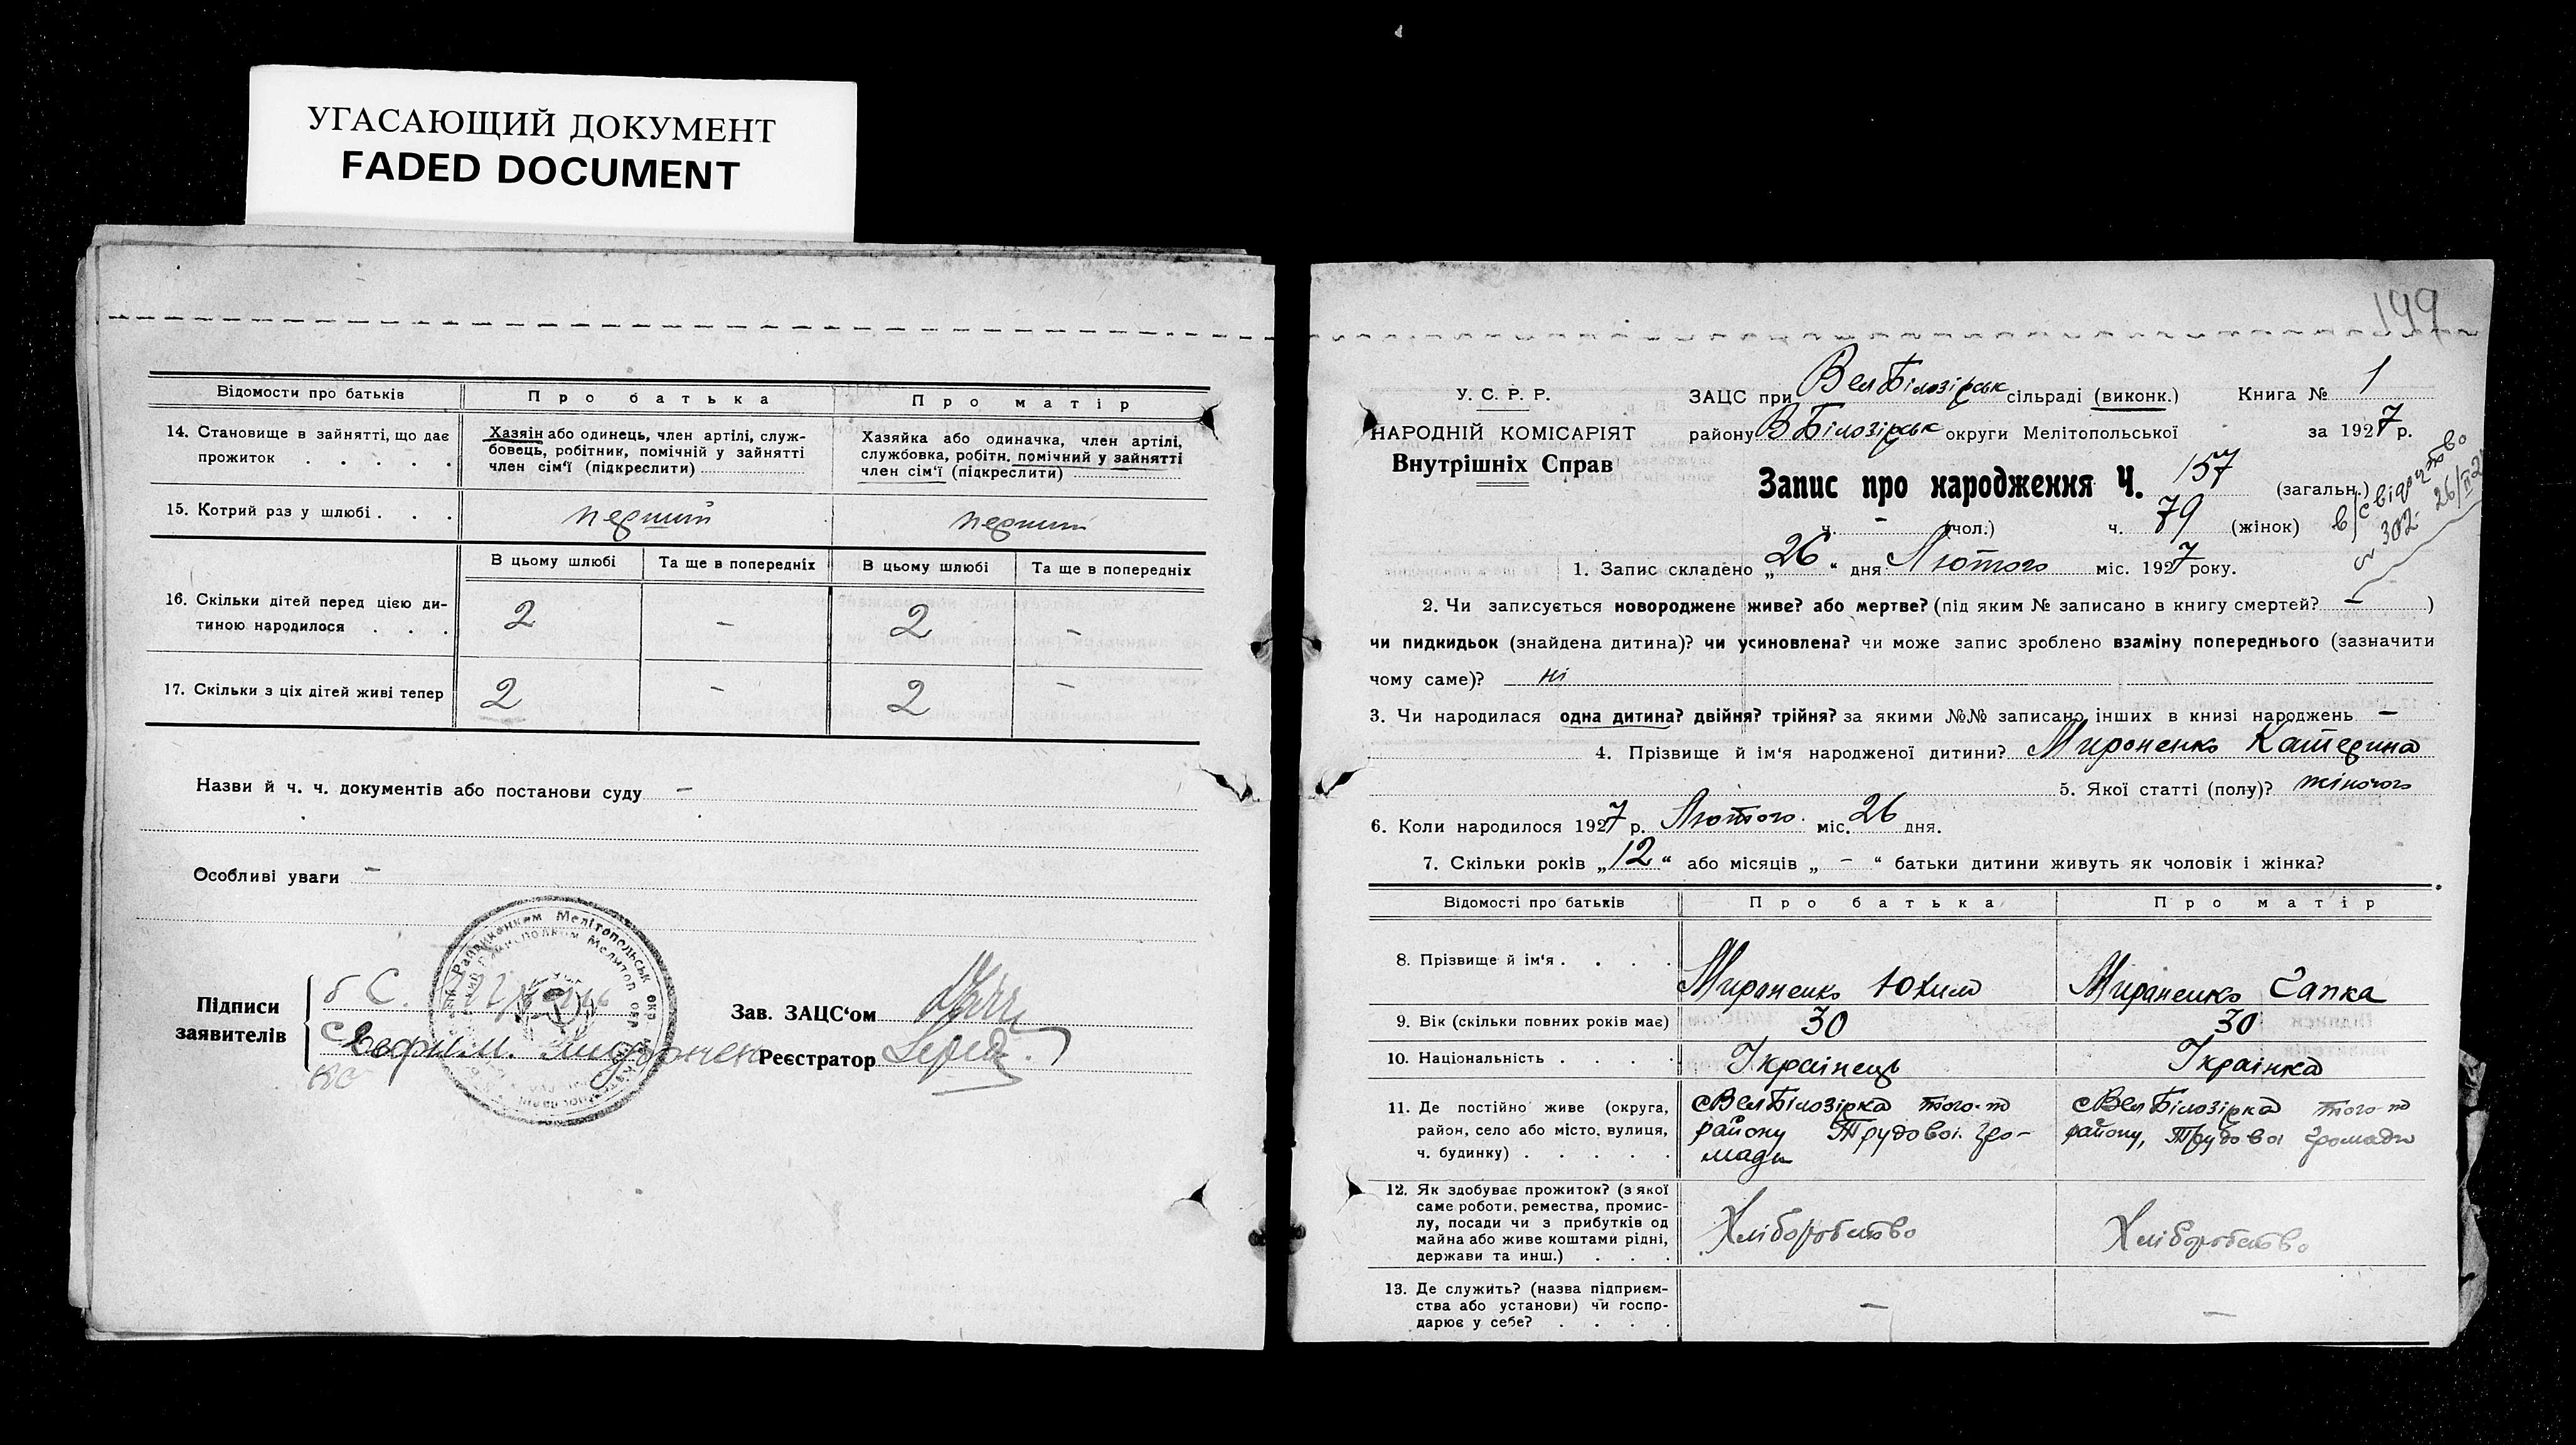 УГАСАЮЩИЙ ДОКУМЕНТ
FADED DOCUMENT
Відомости про батьків
Про батька
Про матір
14. Становище в зайнятті, що дає
прожиток . . . . .
Хазяін або одинець, член артілі, служ-
бовець, робітник, помічній у зайнятті
член сім‘ї (підкреслити)
Хазяйка або одиначка, член артілі,
службовка, робітн. помічний у зайнятті
член сім‘ї (підкреслити)
15. Котрий раз у шлюбі . . .
перший
перший
В цьому шлюбі
Та ще в попередніх
В цьому шлюбі
Та ще в попередніх
16. Скільки дітей перед цією ди-
тиною народилося . . .
2
-
2
-
17. Скільки з ціх дітей живі тепер
2
-
2
-
Назви й ч. ч. документів або постанови суду -
Особливі уваги -
Підписи
заявителів
Зав. ЗАЦС‘ом
Реєстратор
199
У. С. Р. Р.
НАРОДНІЙ КОМІСАРІЯТ
Внутрішніх Справ
ЗАЦС при Вел Білозірськ сільраді (виконк.) Книга № 1
району В Білозірськ округи Мелітопольської за 1927 р.
Запис про народження Ч. 157 (загальн.)
ч. - (чол.) ч. 79 (жінок)
в/свідоцтво
302
1. Запис складено „26“ дня Лютого міс. 1927 року.
2. Чи записується новороджене живе? або мертве? (під яким № записано в книгу смертей? - )
чи пидкидьок (знайдена дитина)? чи усиновлена? чи може запис зроблено взаміну попереднього (зазначити
чому саме)? ні
3. Чи народилася одна дитина? двійня? трійня? за якими №№ записано інших в книзі народжень -
4. Прізвище й ім‘я народженої дитини? Мироненко Катерина
5. Якої статті (полу)? жіночого
6. Коли народилося 1927 р. Лютого міс. 26 дня.
7. Скільки років „12“ або місяців „-“ батьки дитини живуть як чоловік і жінка?
Відомості про батьків
Про батька
Про матір
8. Прізвище й ім‘я . . . .
Мироненко Юхим
Мироненко Гапка
9. Вік (скільки повних років має)
30
30
10. Національність . . . .
Українець
Українка
11. Де постійно живе (округа,
район, село або місто, вулиця,
ч. будинку) . . . . .
с Вел Білозірка того-ж
району Трудової гро-
мади
с Вел Білозірка того-ж
району, Трудової громади
12. Як здобуває прожиток? (з якої
саме роботи, ремества, промис-
лу, посади чи з прибутків од
майна або живе коштами рідні,
держави та инш.) . . .
Хліборобство
Хліборобство
13. Де служить? (назва підприєм-
ства або установи) чи госпо-
дарює у себе? . . . .
-
-